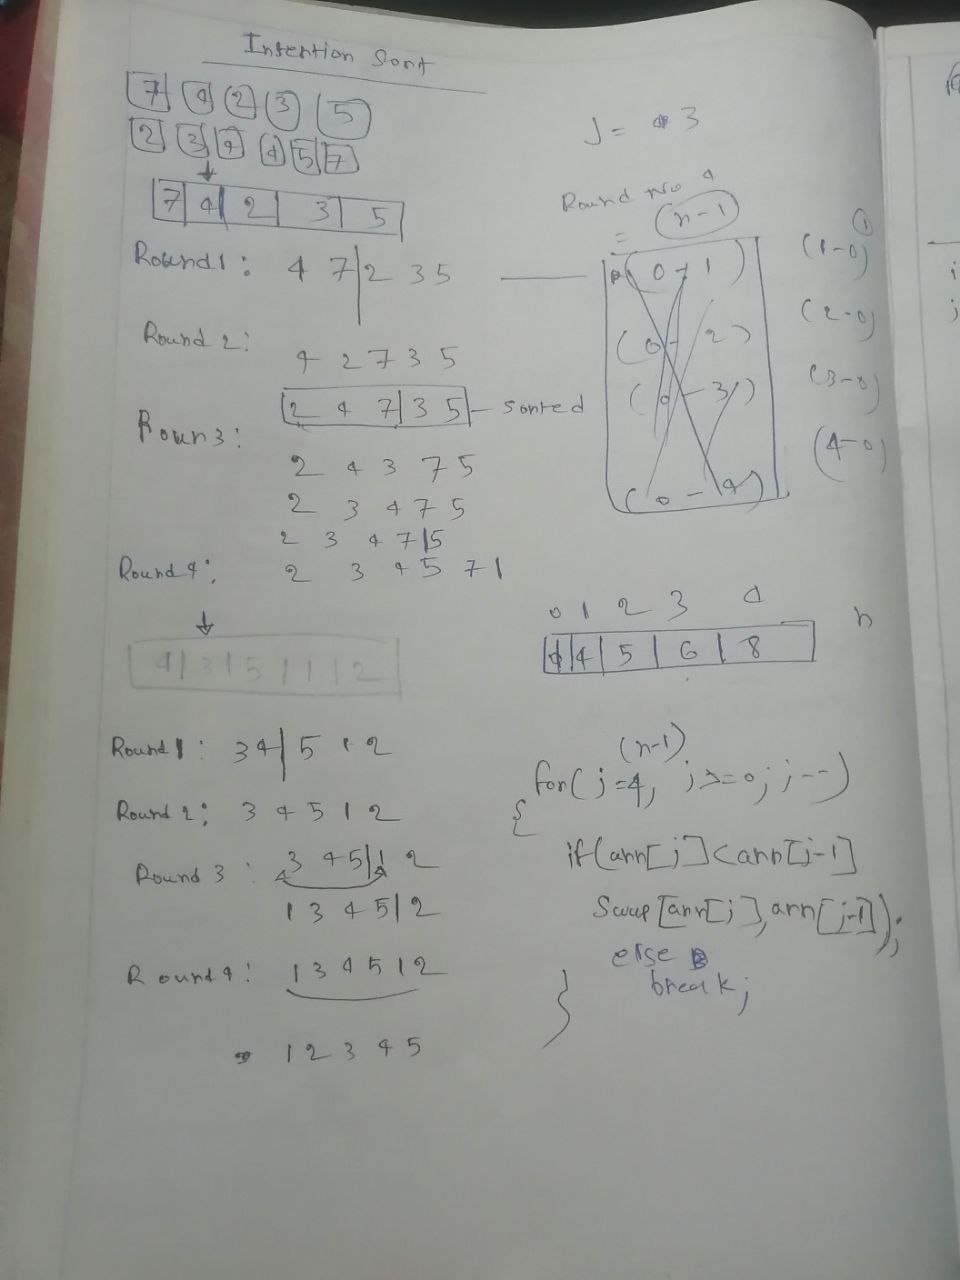 Insertion Sort
7 4 2 3 5
2 3 4 4 5 7
7 | 4 | 2 | 3 | 5
Round 1: 4 7 | 2 3 5
Round 2: 4 2 7 3 5
2 4 7 | 3 5 - sorted
Roun 3:
2 4 3 7 5
2 3 4 7 5
2 3 4 7 | 5
Round 4: 2 3 4 5 7 |
4 | 3 | 5 | 1 | 2
Round 1: 3 4 | 5 1 2
Round 2: 3 4 5 1 2
Round 3: 3 4 5 | 1 2
1 3 4 5 | 2
Round 4: 1 3 4 5 | 2
1 2 3 4 5
J = 3
Round No 4
= (n-1)
(0-1) (1-0)
(0-2) (2-0)
(0-3) (3-0)
(0-4) (4-0)
0 1 2 3 4 n
4 | 5 | 6 | 8
(n-1)
for( j=4, j>=0; j--)
{
if(arr[j]<arr[j-1]
Swap[arr[j],arr[j-1]);
else
break;
}